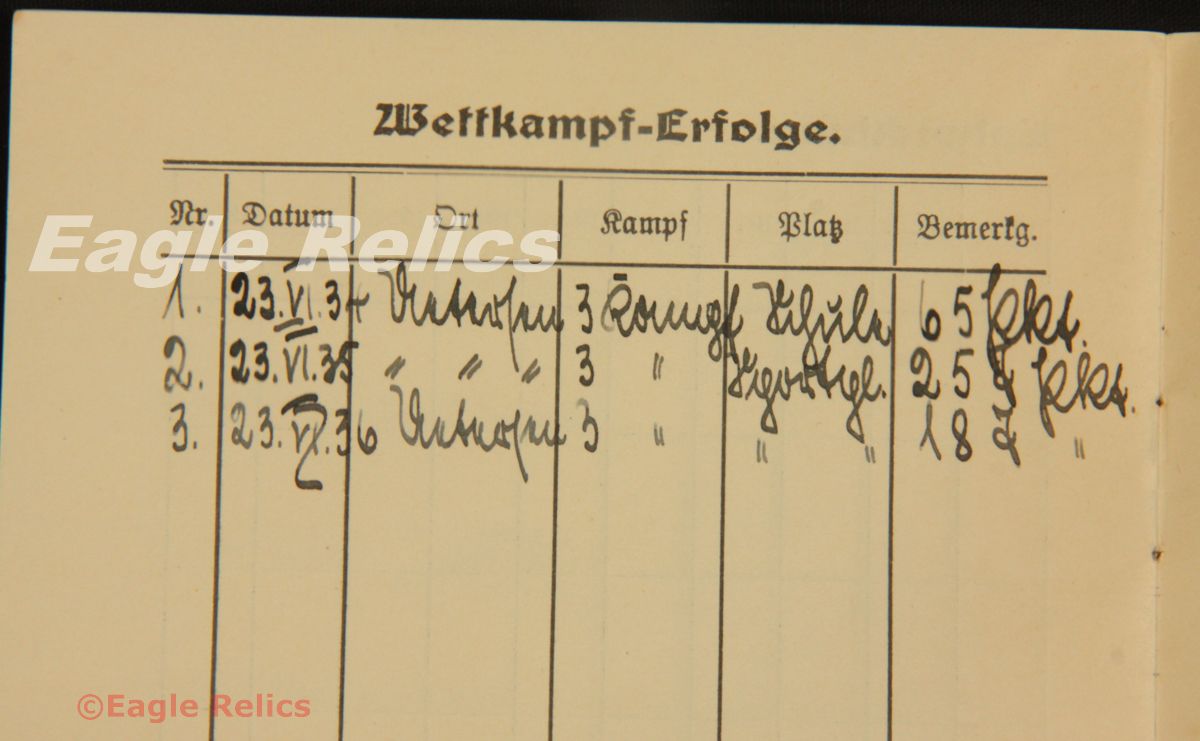 Wettkampf-Erfolge.
Nr. Datum Ort Kampf Platz Bemerkg.
Eagle Relics
1. 23.VI.34 Uetersen 3 Kampf Schule 65 Pkt.
2. 23.VI.35 " " " 3 " Sportpl. 25 Pkt.
3. 23.VI.36 Uetersen 3 " " " 187 "
©Eagle Relics